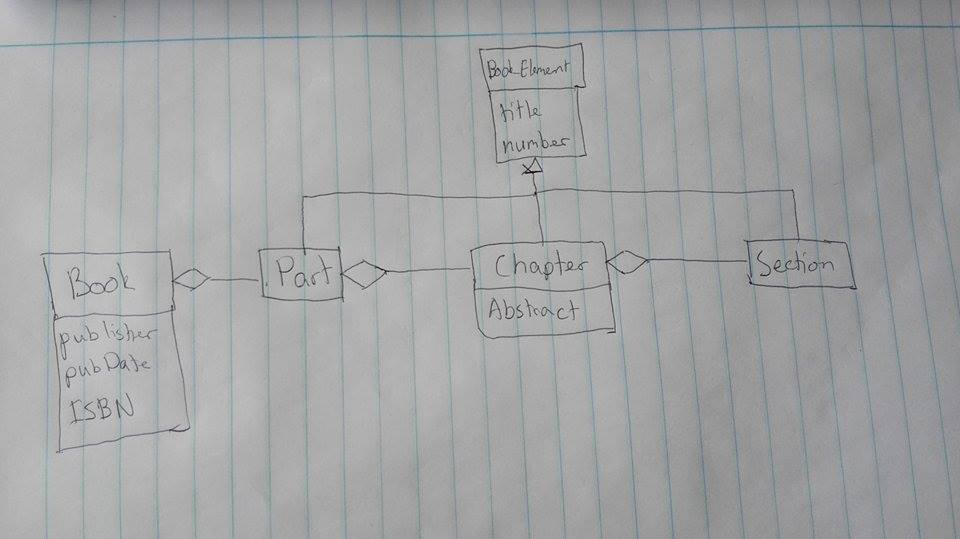 Book_Element
title
number
Book
publisher
pubDate
ISBN
Part
Chapter
Abstract
Section